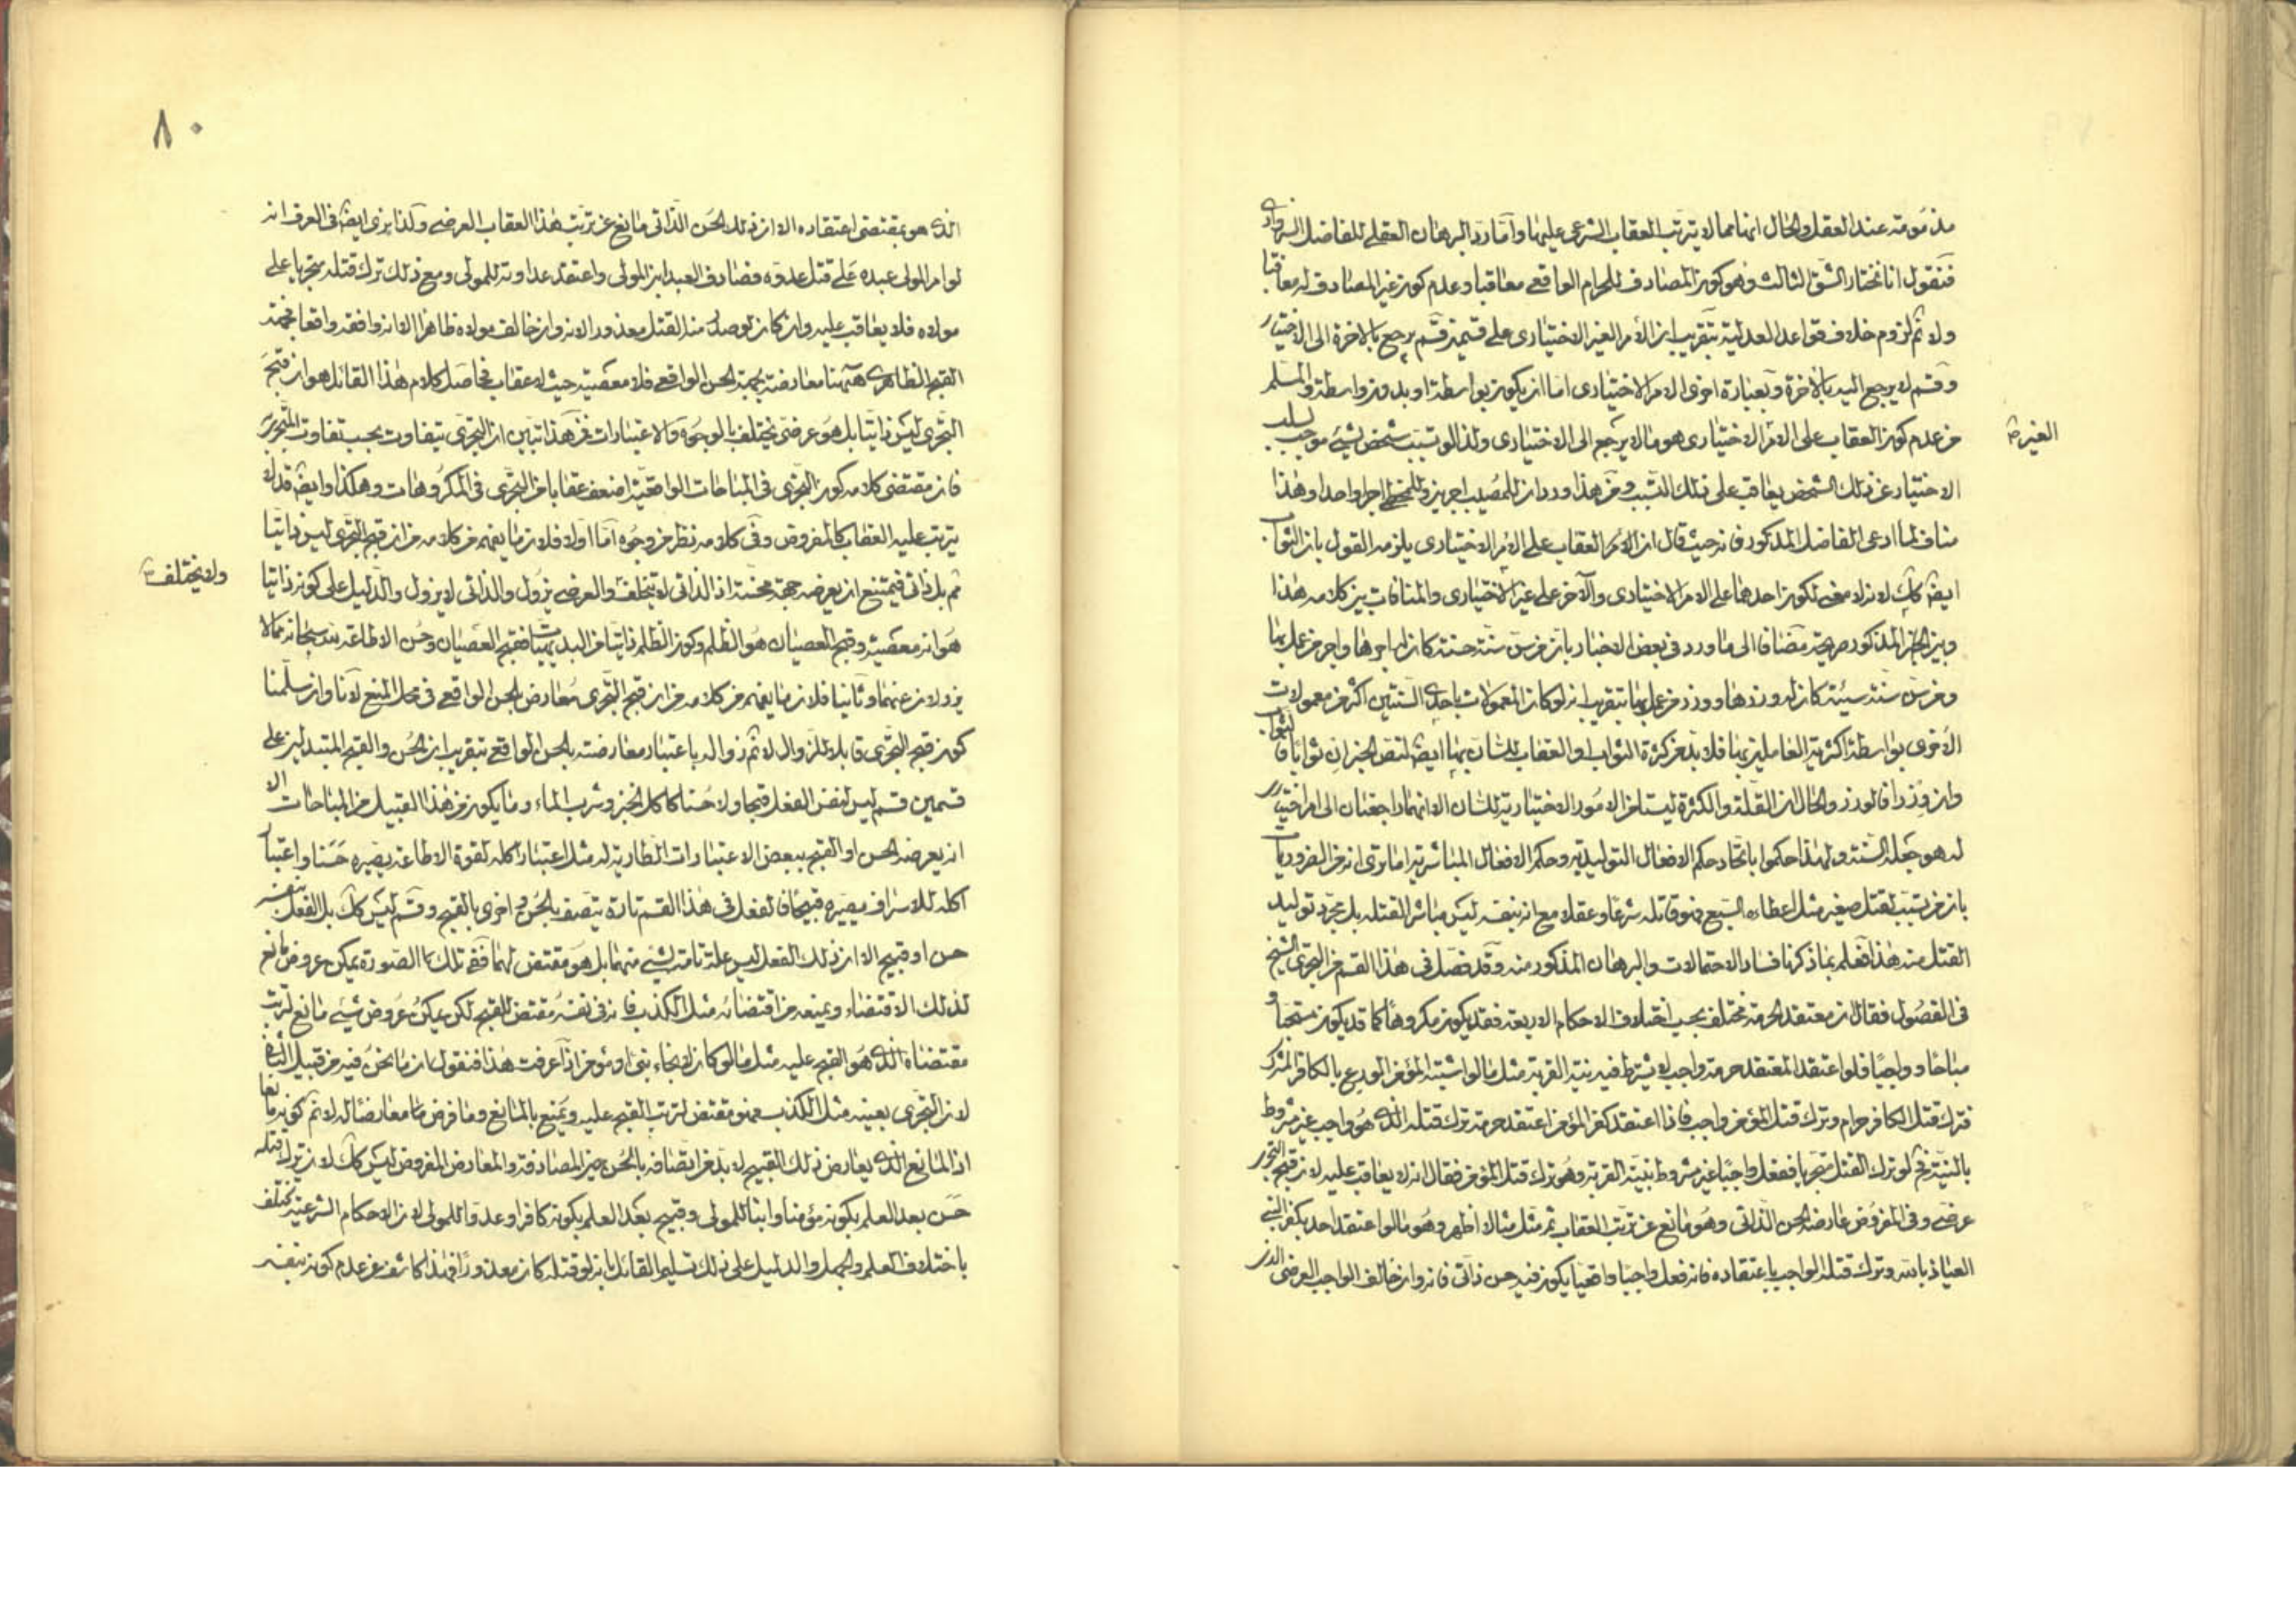 مذمومة عند العقل والحال انها مما لا يترتب العقاب الشرعى عليها واما رد البرهان العقلى للفاضل السبزوارى
فنقول انا نختار الشق الثالث وهو كون المصادف للحرام الواقعى معاقبا وعدم كون غير المصادف له معاقبا
ولا ثم لزوم خلاف قواعد العدلية بتقريب ان الامر الغير الاختيارى على قسمين قسم يرجع بالاخرة الى الاختيار
وقسم لا يرجع اليه بالاخرة وبعبارة اخرى الامر الاختيارى اما ان يكون بواسطة او بدون واسطة والمسلم
من عدم كون العقاب على الامر الاختيارى هو ما لا يرجع الى الاختيارى ولذا لو تسبب شخص لشئ موجب لسلب
الغير
الاختيار عن ذلك الشخص يعاقب على ذلك التسبب ومن هذا ورد ان للمصيب اجرين وللمخطئ اجرا واحدا وهذا
مناف لما ادعى الفاضل المذكور فانه حيث قال ان لا اثر العقاب على الامر الاختيارى يلزمه القول بان الثواب
ايضا كك لانه لا معنى لكون احدهما على الامر الاختيارى والآخر على غير الاختيارى والمنافات بين كلامه هذا
وبين الخبر المذكور صريحة مضافا الى ما ورد فى بعض الاخبار بان من سن سنة حسنة كان له اجرها واجر من عمل بها
ومن سن سنة سيئة كان له وزرها ووزر من عمل بها بتقريب انه لو كان المعمولات باحدى السنتين اكثر من معمولات
الاخرى بواسطة اكثرية العاملين بها فلا بد من كثرة الثواب او العقاب للسان بها ايضا لنص الخبر ان ثوابا فالثواب
وان وزرا فالوزر والحال ان القلة والكثرة ليستا من الامور الاختيارية للسان الا انهما راجعتان الى امر اختيارى
له هو جعله السنة ولهذا حكموا باتحاد حكم الافعال التوليدية وحكم الافعال المباشرية اما ترى انه من الضروريات
بان من تسبب لقتل صغير مثل اعطائه السبع فهو قاتله شرعا وعقلا مع انه بنفسه ليس مباشر القتله بل مجرد توليد
القتل منه هذا فعلم بما ذكرنا فساد الاحتمالات والبرهان المذكور منه وقد فصل فى هذا القسم من التجرى الشيخ
فى الفصول فقال ان معتقد الحرمة مختلف بحسب اختلاف الاحكام الاربعة فقد يكون مكروها كما قد يكون مستحبا و
مباحا و واجبا فلو اعتقد المعتقد حرمة واجب لا يشترط فيه نية القربة مثل ما لو اشتبه المؤمن الورع بالكافر المشرك
فترك قتل الكافر حرام وترك قتل المؤمن واجب فاذا اعتقد كفر المؤمن اعتقد حرمة ترك قتله الذى هو واجب غير مشروط
بالنية ثم لو ترك القتل متجريا ففعل واجبا غير مشروط بنية القربة وهو ترك قتل المؤمن فقال انه لا يعاقب عليه لان قبح التجرى
عرضى وفى المفروض عارضه الحسن الذاتى وهو مانع عن ترتب العقاب ثم مثل مثالا اظهر وهو ما لو اعتقد احد بكفر النبى
العياذ بالله وترك قتله الواجب باعتقاده فانه فعل واجبا واقعيا يكون فيه حسن ذاتى فانه وان خالف الواجب العرضى الذى
٨٠
الذى هو بمقتضى اعتقاده الا ان ذلك الحسن الذاتى مانع عن ترتب هذا العقاب العرضى وكذا نرى ايضا فى العرف انه
لو امر المولى عبده على قتل عدوه فصادف العبد ابن المولى واعتقد عداوته للمولى ومع ذلك ترك قتله متجريا على
مولاه فلا يعاقب عليه وان كان لو صدر منه القتل معذور الانه وان خالف مولاه ظاهرا الا انه وافقه واقعا فجهة
القبح الظاهرى ههنا معارضة بجهة الحسن الواقعى فلا معصية حيث لا عقاب فحاصل كلام هذا القائل هو ان قبح
التجرى ليس ذاتيا بل هو عرضى يختلف بالوجوه والاعتبارات فمن هذا تبين ان التجرى يتفاوت بحسب تفاوت المتجرى به
فان مقتضى كلامه كون التجرى فى المباحات الواقعية اضعف عقابا من التجرى فى المكروهات وهكذا وايضا قد لا
يترتب عليه العقاب كالمفروض وفى كلامه نظر من وجوه اما اولا فلان ما يفهم من كلامه من ان قبح التجرى ليس ذاتيا
ثم بل ذاتى فيمتنع ان يعرضه جهة محسنة اذ الذاتى لا يتخلف والعرضى يزول والذاتى لا يزول والدليل على كونه ذاتيا
ولا يختلف
هو انه معصية وقبح العصيان هو الظلم وكون الظلم ذاتيا من البديهيات فقبح العصيان وحسن الاطاعة لله سبحانه مما لا
يزولان عنهما وثانيا فلان ما يفهم من كلامه من ان قبح التجرى معارض بالحسن الواقعى فى محل المنع لانا وان سلمنا
كون قبح التجرى قابلا للزوال لا ثم زواله باعتبار معارضته بالحسن الواقعى بتقريب ان الحسن والقبح المتبدلين على
قسمين قسم ليس لنفس الفعل قبحا ولا حسنا كاكل الخبز وشرب الماء وما يكون من هذا القبيل من المباحات الا
انه يعرضه الحسن او القبح ببعض الاعتبارات الطارية له مثل اعتبار اكله لقوة الاطاعة يصيره حسنا واعتبار
اكله للاسراف يصيره قبيحا فالفعل فى هذا القسم تارة يتصف بالحسن واخرى بالقبح وقسم ليس كك بل الفعل بنفسه
حسن او قبيح الا ان ذلك الفعل ليس علة تامة لشئ منهما بل هو مقتض لهما ففى تلك الصورة يمكن عروض مانع
لذلك الاقتضاء ويمنعه من اقتضائه مثل الكذب فانه فى نفسه مقتض للقبح لكن يمكن عروض شئ مانع لترتب
مقتضاه الذى هو القبح عليه مثل ما لو كان لانجاء نبى او مؤمن اذا عرفت هذا فنقول ان ما نحن فيه من قبيل الثانى
لان التجرى بعينه مثل الكذب فهو مقتض لترتب القبح عليه ويمنع بالمانع وما فرض معارضا له لا ثم كونه مانعا
اذ المانع الذى يعارض ذلك القبيح لا بد من اتصافه بالحسن حين المصادفة والمعارض المفروض ليس كك لان ترك قتله
حسن بعد العلم بكونه مؤمنا وابنا للمولى وقبيح بعد العلم بكونه كافرا وعدوا للمولى لان الاحكام الشرعية تختلف
باختلاف العلم والجهل والدليل على ذلك تسليم القائل بانه لو قتله كان معذورا فهذا كاشف عن عدم كونه بنفسه